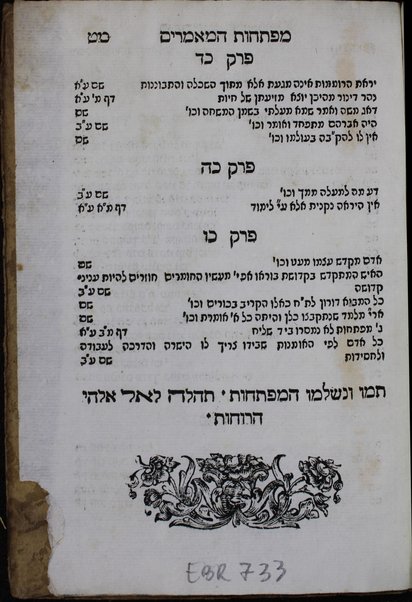 מפתחות המאמרים מט
פרק כד
יראת הרוממות אינה מגעת אלא מתוך השכלה והתבוננות שם ע"א
נהר דינור מהיכן יוצא מזיעתן של חיות דף מ' ע"א
דאג משה ואמר שמא מעלתי בשמן המשחה וכו' שם
היה אברהם מתפחד ואומר וכו' שם ע"ב
אין לו להק"בה בעולמו וכו' שם
פרק כה
דע מה למעלה ממך וכו' שם ע"ב
אין היראה נקנית אלא ע"י לימוד דף מ"א ע"א
פרק כו
אדם מקדש עצמו מעט וכו' שם
האיש המתקדש בקדושת בוראו אפי' מעשיו החומריים חוזרים להיות עניני
קדושה שם ע"ב
כל המביא דורון לת"ח כאלו הקריב בכורים וכו' שם
אר"י תלמד שנתקבצו כלן והיתה כל א' אומרת וכו' שם
ג' מפתחות לא נמסרו ביד שליח דף מ"ב ע"א
כל אדם לפי האומנות שבידו צריך לו הישרה והדרכה לעבודה
ולחסידות שם ע"ב
תמו ונשלמו המפתחות' תהלה לאל אלהי
הרוחות'
EBR 733